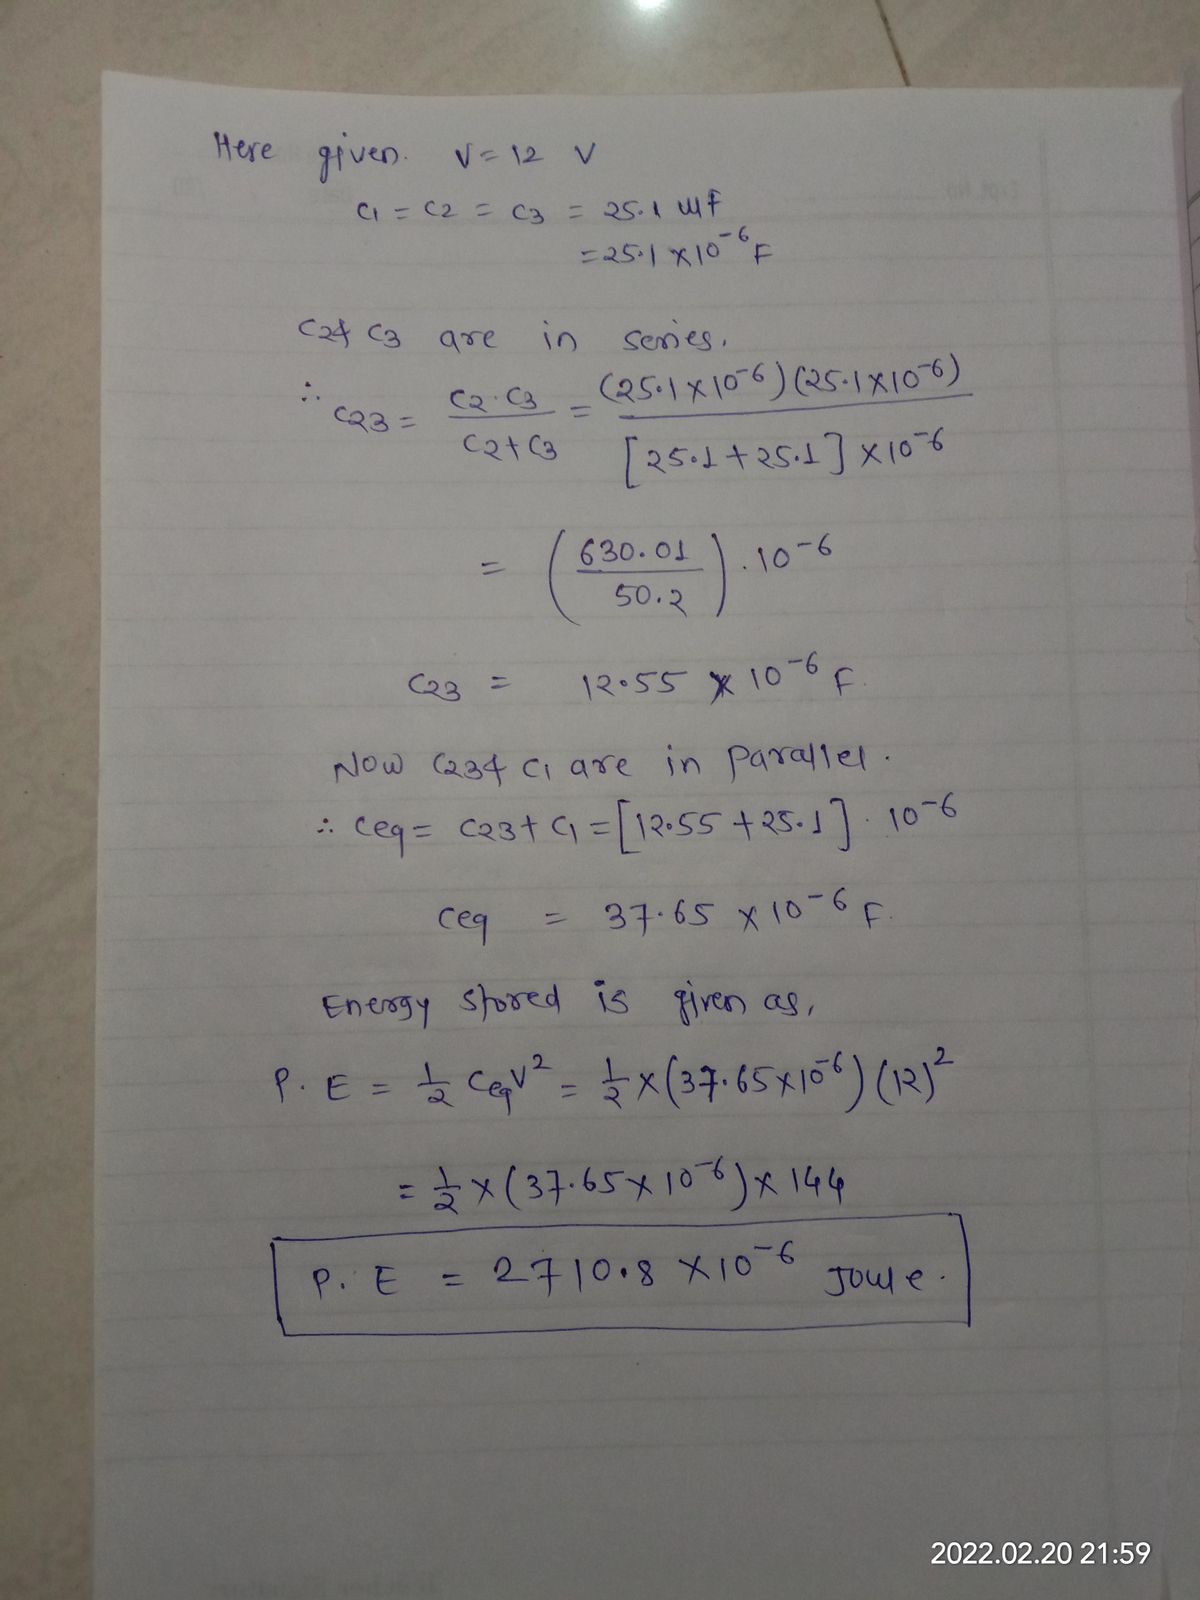 Here given. V = 12 V
C1 = C2 = C3 = 25.1 μF
= 25.1 × 10⁻⁶ F
C2 & C3 are in series.
∴ C23 = C2·C3 / C2+C3 = (25.1×10⁻⁶)(25.1×10⁻⁶) / [25.1+25.1] ×10⁻⁶
= (630.01 / 50.2) . 10⁻⁶
C23 = 12.55 × 10⁻⁶ F.
Now C23 & C1 are in parallel.
∴ Ceq = C23 + C1 = [12.55 + 25.1] . 10⁻⁶
Ceq = 37.65 × 10⁻⁶ F.
Energy stored is given as,
P. E = 1/2 Ceq V² = 1/2 × (37.65×10⁻⁶) (12)²
= 1/2 × (37.65 × 10⁻⁶) × 144
P. E = 2710.8 ×10⁻⁶ Joule.
2022.02.20 21:59